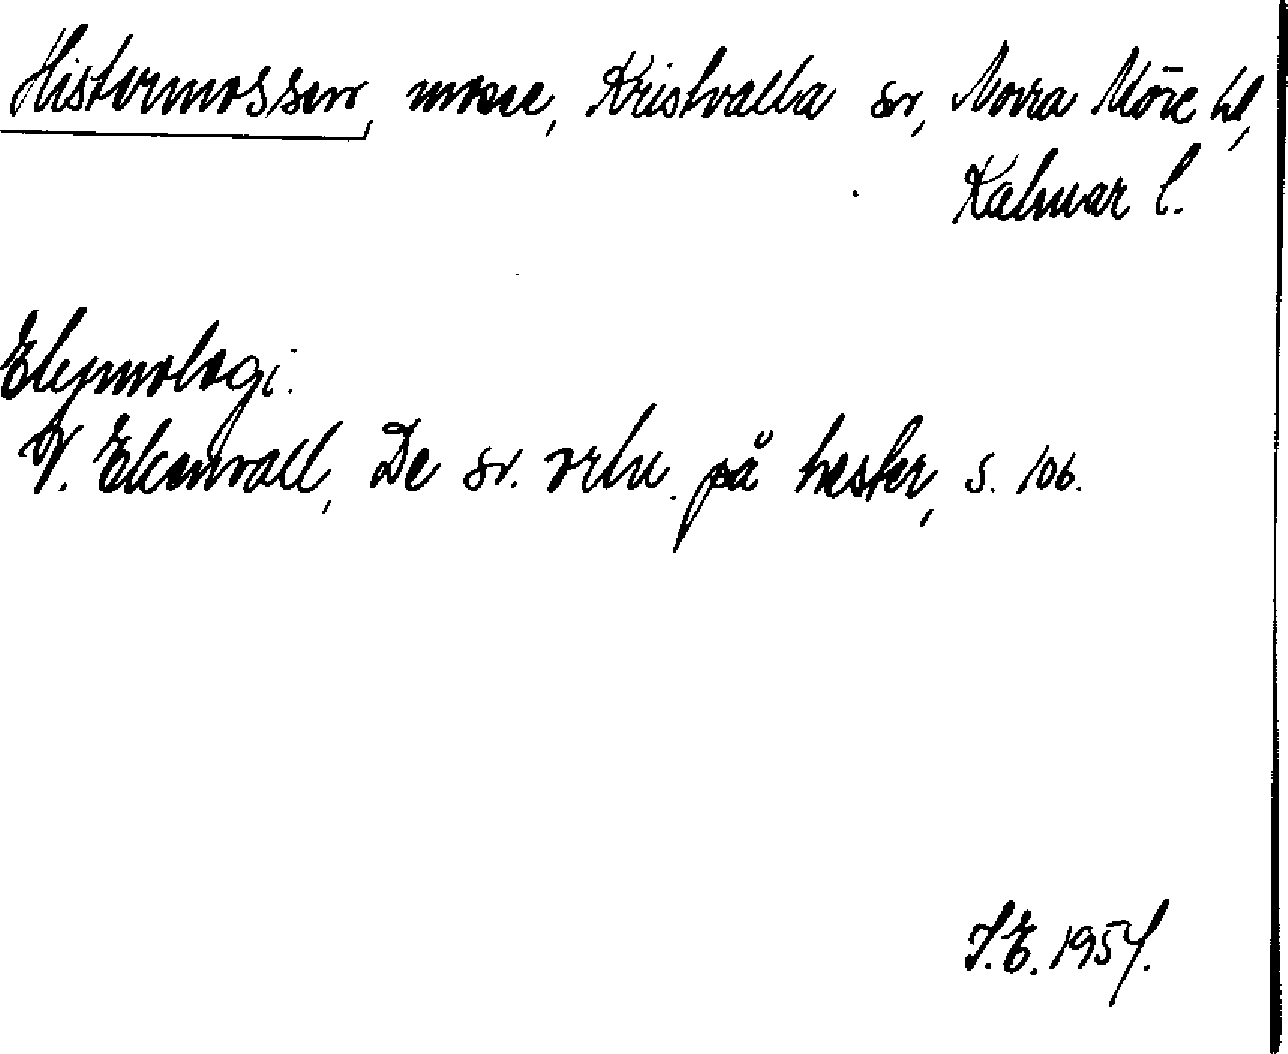 Histermossen, mosse, Kristvalla sn, Norra Möre hd,
Kalmar l.
Etymologi.
V. Ekenvall, De sv. ortn. på hester, s. 106.
I.E. 1954.